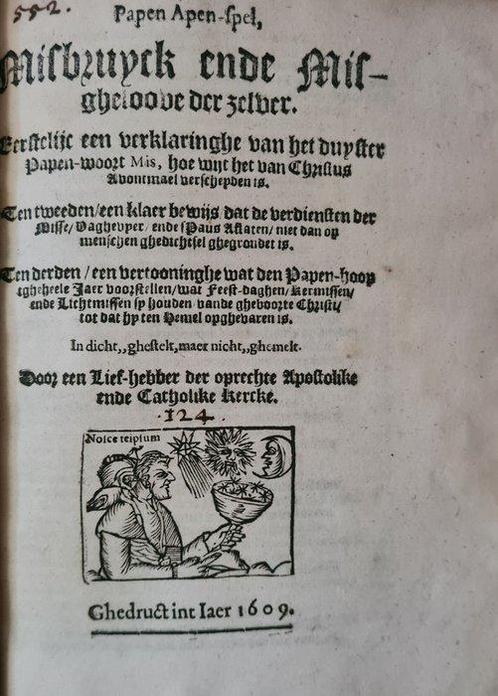 552.
Papen Apen-spel,
Misbruyck ende Mis-
gheloove der zelver.
Eerstelijc een verklaringhe van het duyster
Papen-woort Mis, hoe wijt het van Christus
Avontmael verscheyden is.
Ten tweeden/een klaer bewijs dat de verdiensten der
Misse/Vaghevyer/ende sPaus Aflaten/niet dan op
menschen ghedichtsel ghegrondet is.
Ten derden/een vertooninghe wat den Papen-hoop
tgheheele Jaer voorstellen/wat Feest-daghen/Kermissen/
ende Lichtmissen sy houden/vande gheboorte Christi/
tot dat hy ten Hemel opghevaren is.
In dicht,,ghestelt,maer nicht,,ghemelt.
Door een Lief-hebber der oprechte Apostolike
ende Catholike Kercke.
·124.
Nosce teipsum
Ghedruct int Iaer 1609.